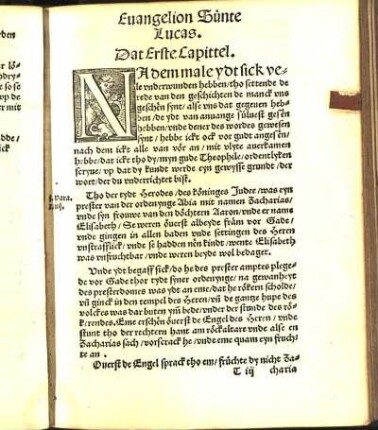 Euangelion Sünte
Lucas.
Dat Erste Capittel.
NAdem male ydt sick ve-
le vnderwunden hebben/tho settende de
rede van den geschichten de manck vns
geschên synt/alse vns dat gegeuen heb-
ben/de ydt van anuange süluest geseen
hebben/vnde dener des wordes gewesen
synt/hebbe ick ock vor gudt angesên/
nach dem icks alle van vôr an/mit vlyte auerkamen
hebbe/dat ickt tho dy/myn gude Theophile/ordentlyken
scryue/vp dat du kunde werde eyn gewysse grundt/der
wort/der du vnderrichtet bist.
Tho der tydt Herodes/des köninges Judee/was eyn
prester van der ordenynge Abia mit namen Zacharias/
vnde syn frouwe van den döchtern Aaron/vnde er name
Elisabeth/Se weren öuerst alle beyde fråm vor Gade/
vnde gingen in allen baden vnde settingen des Heren
vnstraffick/vnde se hadden nên kindt/wente Elisabeth
was vnfruchtbar/vnde weren beyde wol bedaget.
Vnde ydt begaff sick/do he des prester amptes plege-
de vor Gade thor tydt syner ordenynge/na gewanheyt
des presterdomes was ydt an eme/dat he rökern scholde/
vñ ginck in den tempel des Heren/vñ de gantze hupe des
volckes was dar buten ym bede/vnder der stunde des rö-
kerendes. Eme erschên öuerst de Engel des Heren/vnde
stunt tho der rechtern hant am röckaltare vnde alse en
Zacharias sach/vorscrack he/vnde eme quam eyn fruch-
te an.
Ouerst de Engel sprack tho em/früchte dy nicht Za-
T iij charia